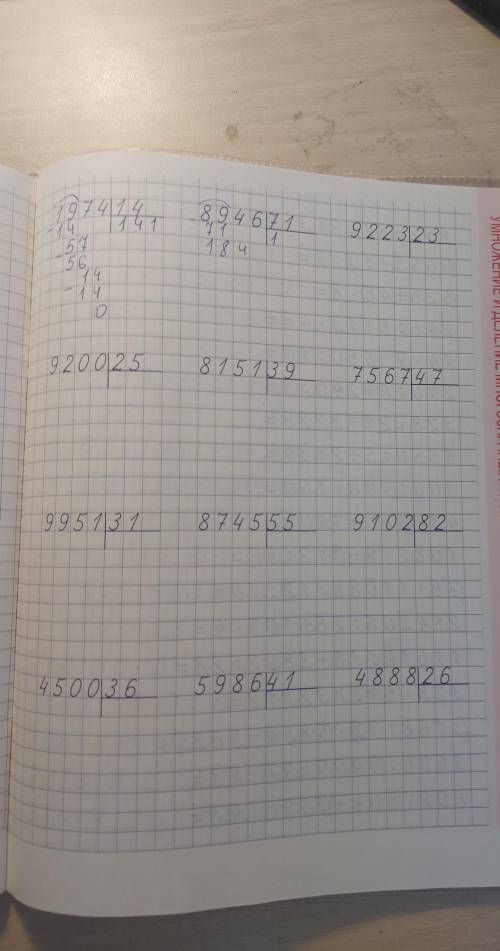 1974 14 8946 71 9223 23
-14 141 -71 1
-57 184
-56
14
-14
0
9200 25 8151 39 7567 47
9951 31 8745 55 9102 82
4500 36 5986 41 4888 26
УМНОЖЕНИЕ И ДЕЛЕНИЕ